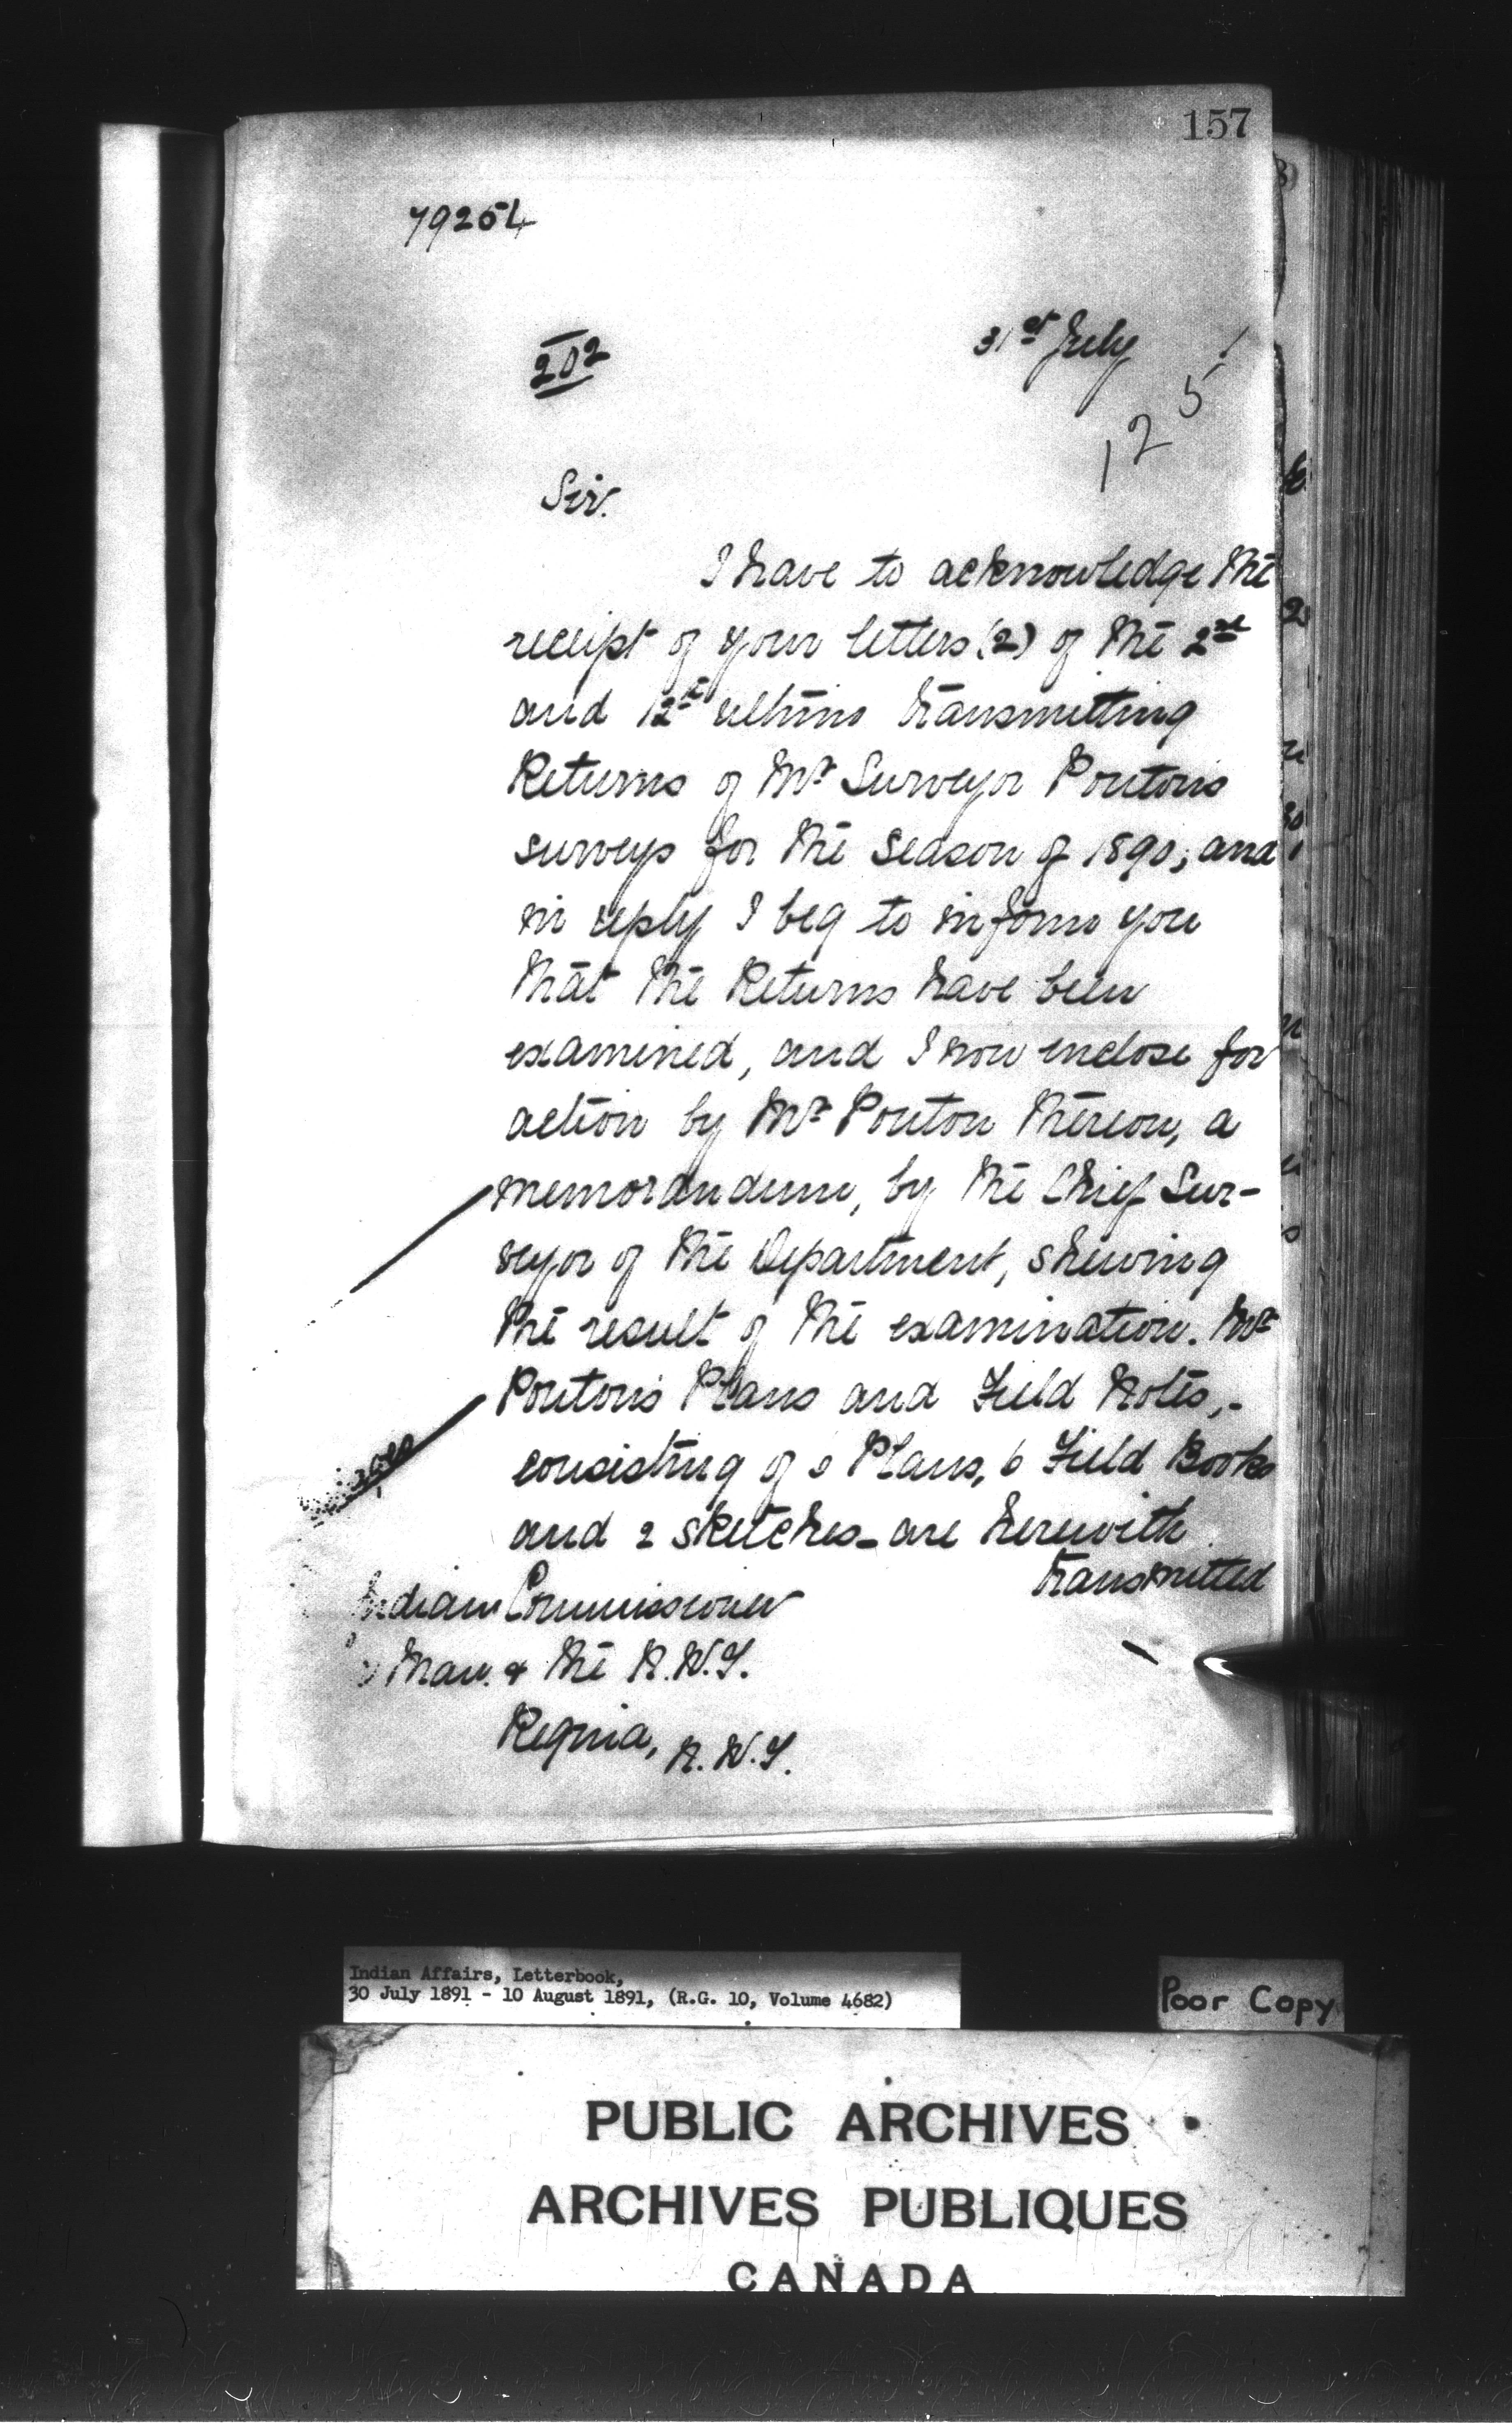 157
79254
202
31st July 1
125
Sir.
I have to acknowledge the
receipt of your letters (2) of the 2nd
and 12th ultimo transmitting
Returns of Mr Surveyor Ponton's
surveys for the season of 1890; and
in reply I beg to inform you
that the Returns have been
examined, and I now enclose for
action by Mr Ponton thereon, a
memorandum, by the Chief Sur-
veyor of the Department, shewing
the result of the examination. Mr
Ponton's Plans and Field Notes,-
consisting of Plans, 6 Field Books
and 2 sketches - are herewith
transmitted
Indian Commissioner
Man. & the N.W.T.
Regina, N.W.T.
Indian Affairs, Letterbook,
30 July 1891 - 10 August 1891, (R.G. 10, Volume 4682)
Poor Copy
PUBLIC ARCHIVES
ARCHIVES PUBLIQUES
CANADA